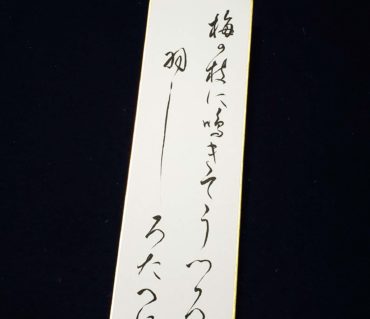 梅か枝に鳴きてうつろ
羽しろたへに